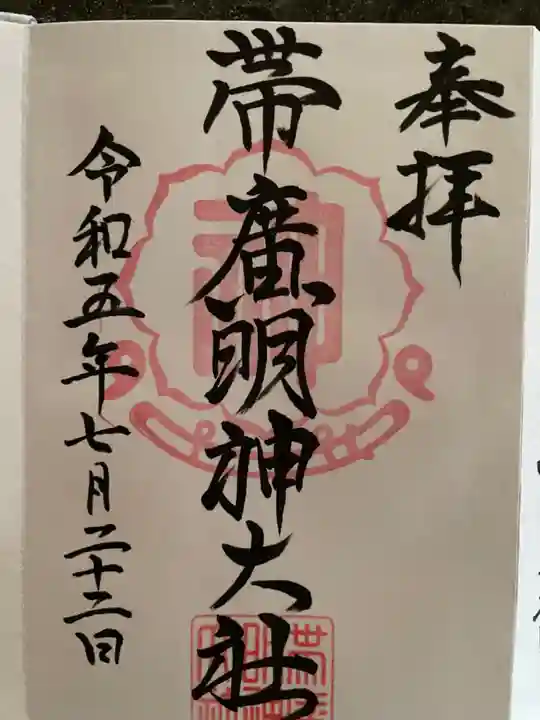 奉拝
帯廣明神大社
令和五年七月二十二日